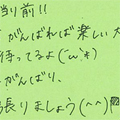 当り前!!
がんばれば楽しい大
待ってるよ(´ω`*)
がんばり、
張りましょう(^^)